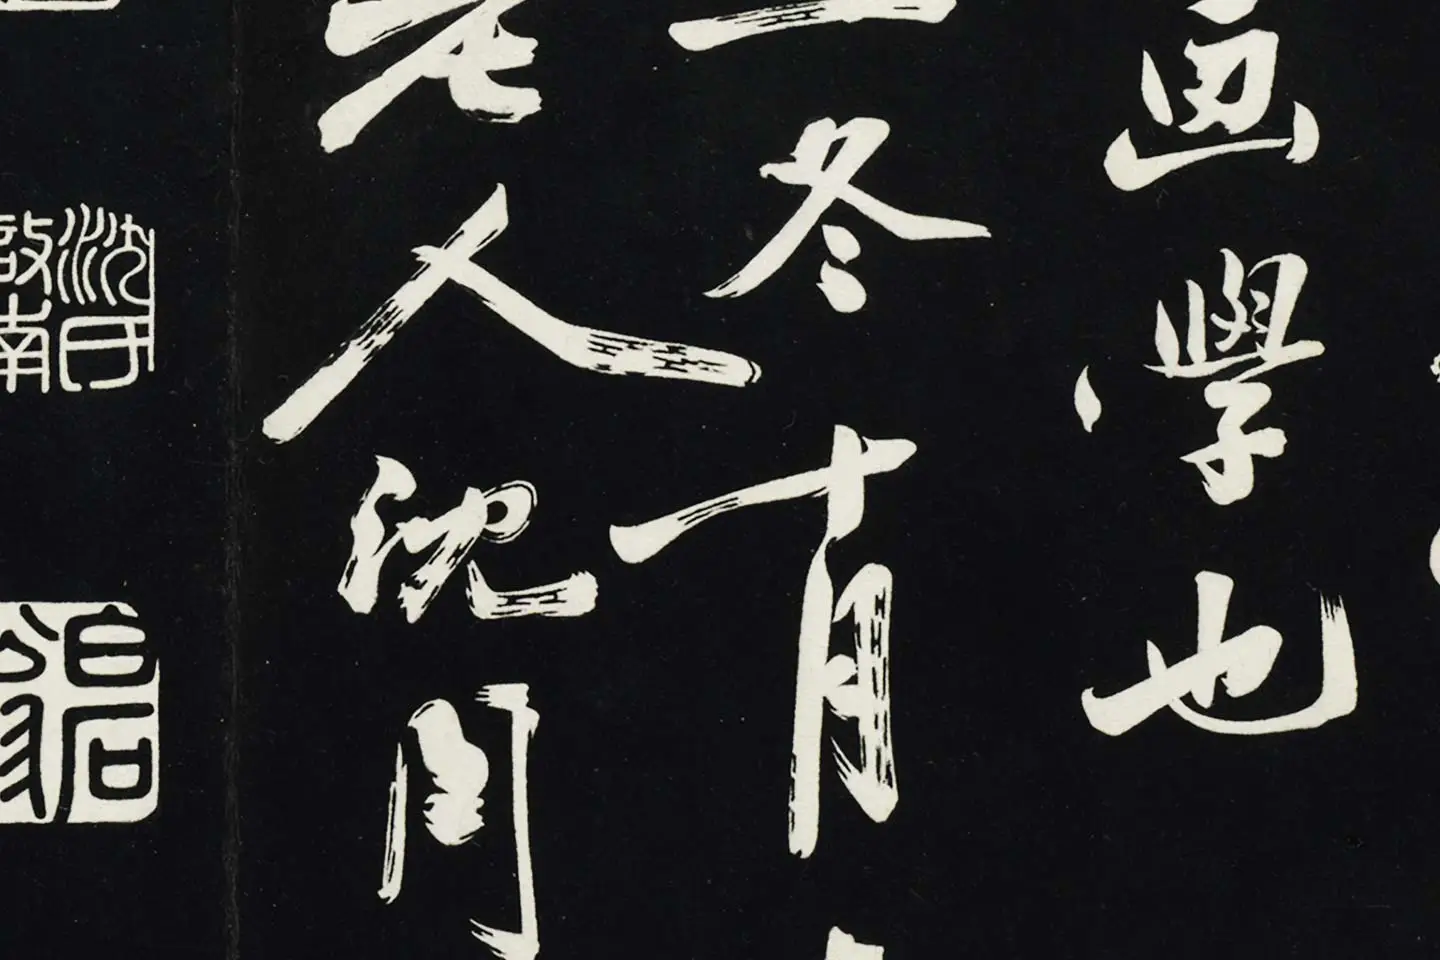 画學也
冬十月
老人沈周
沈氏啟南
石